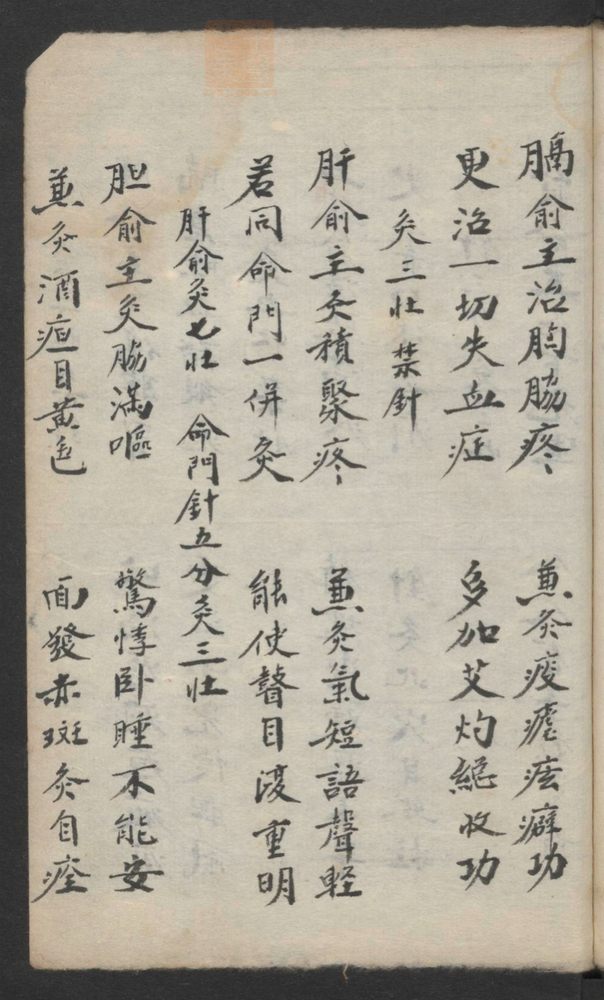 膈俞主治胸脇疼 兼灸痰瘧痃癖功
更治一切失血症 多加艾灼絕收功
灸三壮 禁針
肝俞主灸積聚疼 兼灸氣短語聲輕
若同命門一併灸 能使瞽目復重明
肝俞灸七壮 命門針五分灸三壮
胆俞主灸脇滿嘔 驚悸卧睡不能安
兼灸酒疸目黃色 面發赤斑灸自痊